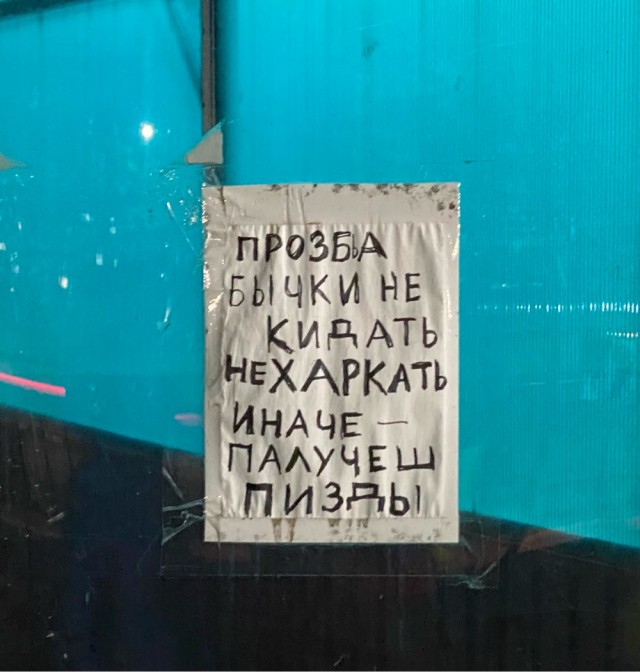 ПРОЗБА
БЫЧКИ НЕ
КИДАТЬ
НЕ ХАРКАТЬ
ИНАЧЕ —
ПАЛУЧЕШ
ПИЗДЫ